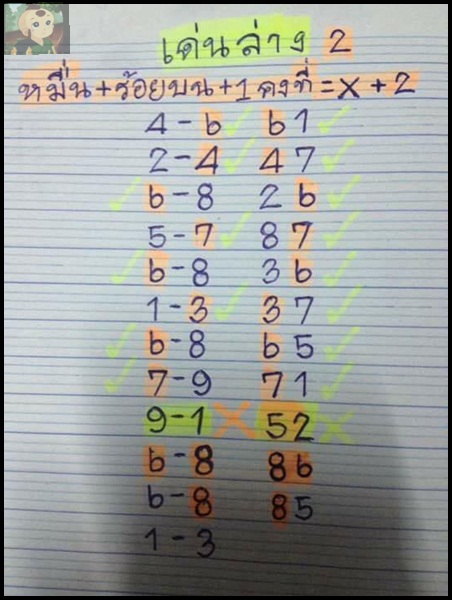 เด่นล่าง 2
หมื่น+ร้อยบน+1คงที่=x+2
4-6 61
2-4 47
6-8 26
5-7 87
6-8 36
1-3 37
6-8 65
7-9 71
9-1 52
6-8 86
6-8 85
1-3